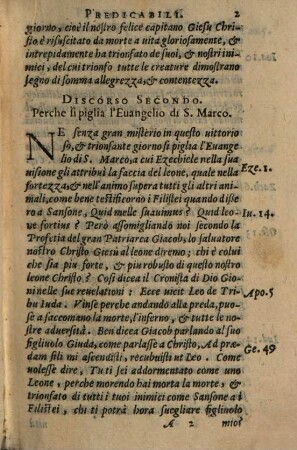 PREDICABILI. 2
giorno, cioè il nostro felice capitano Giesu Chri-
sto è risuscitato da morte a uita gloriosamente, &
intrepidamente ha trionfato de suoi, & nostri ini-
mici, del cui trionfo tutte le creature dimostrano
segno di somma allegrezza, & contentezza.
DISCORSO SECONDO.
Perche si piglia l'Euangelio di S. Marco.
NE senza gran misterio in questo uittorio
so, & trionfante giorno si piglia l'Euange
lio di S. Marco, a cui Ezechiele nella sua
uisione gli attribuì la faccia del leone, quale nella Eze. 1.
fortezza, & nell'animo supera tutti gli altri ani-
mali, come bene testificorno i Filistei quando disse
ro a Sansone, Quid melle suauius? Quid leo-
ne fortius? Però assomigliando noi secondo la Iu. 14.
Profetia del gran Patriarca Giacob, lo saluatore
nostro Christo Giesù al leone diremo; chi è colui
che sia piu forte, & piu robusto di questo nostro
leone Christo? Così dicea il Cronista di Dio Gio
ni nelle sue reuelationi: Ecce uicit Leo de Tri Apo. 5
bu Iuda. Vinse perche andando alla preda, puo-
se a saccomano la morte, l'inferno, & tutte le no-
stre aduersità. Ben dicea Giacob parlando al suo
figliuolo Giuda, come parlasse a Christo, Ad præ- Ge. 49
dam fili mi ascendisti, recubuisti ut Leo. Come
uolesse dire, Tu ti sei addormentato come uno
Leone, perche morendo hai morta la morte, &
trionfato di tutti i tuoi inimici come Sansone a i
Filistei, chi ti potrà hora suegliare figliuolo
A 2 mio?